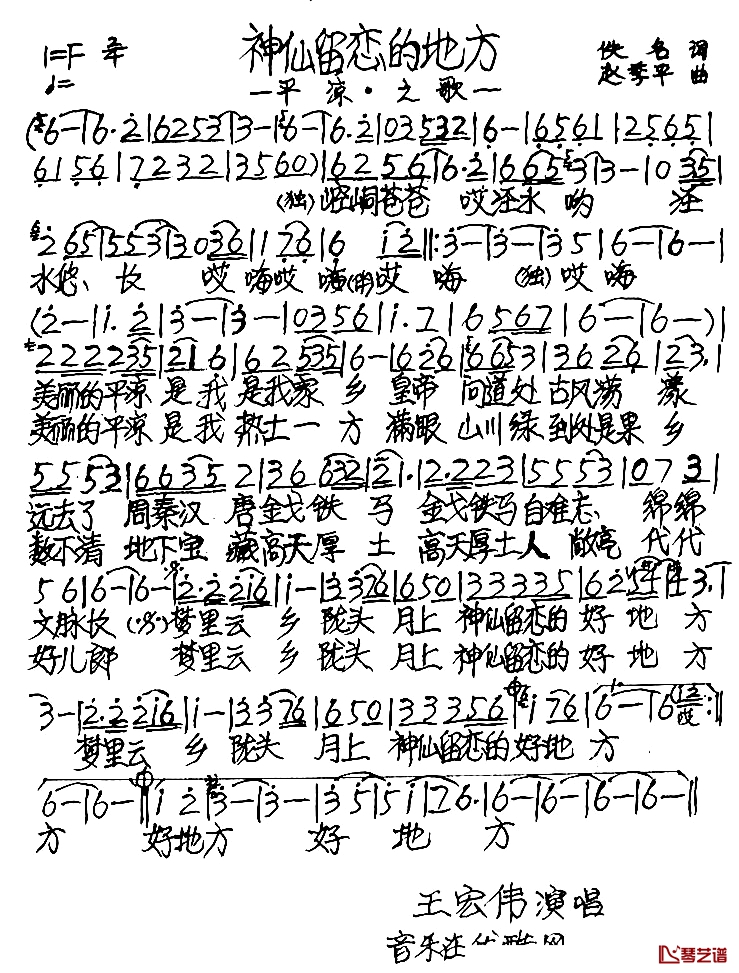 神仙留恋的地方
1=F 2/4 佚名 词
赵季平 曲
—平凉·之歌—
(6-|6·2|6253|3-|6-|6·2|03532|6-|6561|2565|
6156|7232|3560)|6256|6·2|6653|3-|035|
(独)崆峒苍苍 哎泾水哟 泾
265|553|3036|176|6 12‖:3-|3-|35|6-|6-|
水悠、长 哎嗨哎嗨(伴)哎嗨 (独)哎嗨
(2-|1.2|3-|3-|0356|1.7|6567|6-|6-)|
222235|216|62535|6-|626|6653|3626|23.|
美丽的平凉是我是我家乡 皇帝问道处古风荡漾
美丽的平凉是我热土一方 满眼山川绿到处是果乡
5553|66352|36632|21.|2.223|5553|073|
远去了周秦汉唐金戈铁马 金戈铁马自难忘、绵绵
数不清地下宝藏高天厚土 高天厚土人敞亮 代代
56|6-|6-|2.2216|1-|3376|650|33335|6254|43.|
文脉长(:S:)梦里云乡陇头月上神仙留恋的好地方
好儿郎 梦里云乡陇头月上神仙留恋的好地方
3-|2.2216|1-|3376|650|333356|176|6-|6(12:‖
哎
梦里云乡陇头月上神仙留恋的好地方
6-|6-‖12|3-|3-|35|51|76.|6-|6-|6-|6-‖
方 好地方 好地方
王宏伟演唱
音乐在
琴艺谱